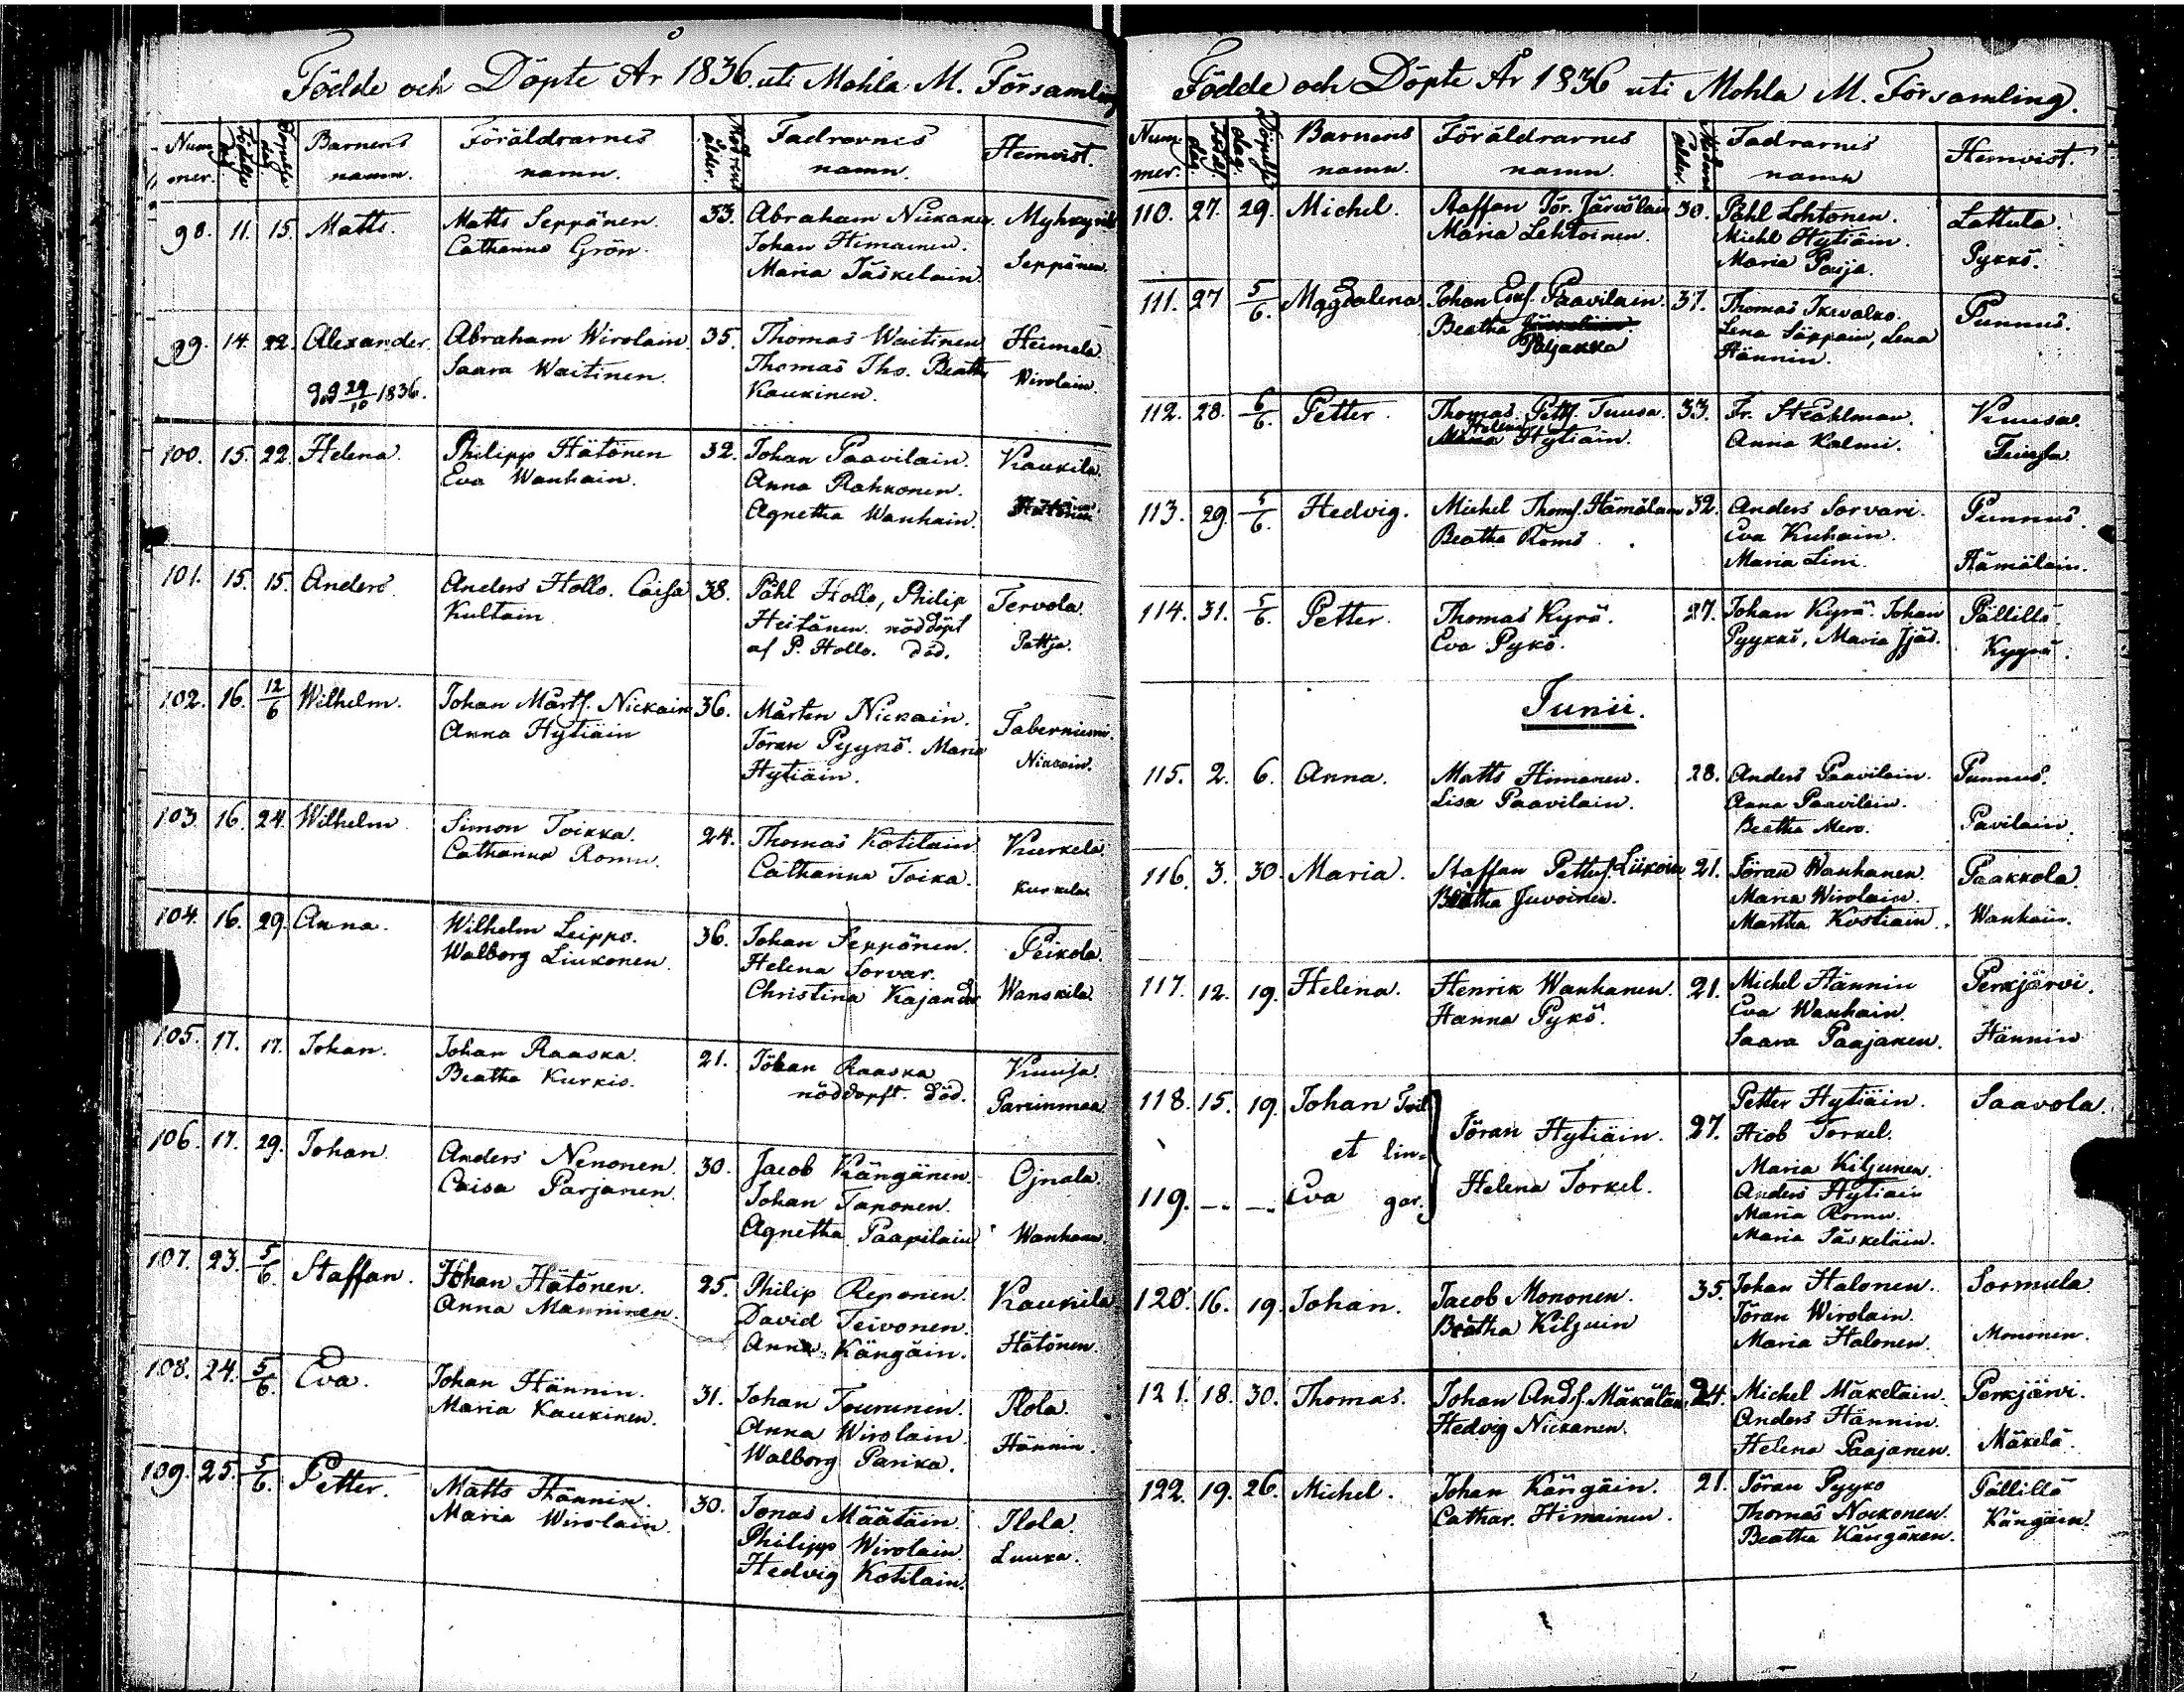 Födde och Döpte År 1836. uti Mohla M. Församling
Num mer. Födelse dag Döpelse dag. Barnens namn. Föräldrarnes namn. Modrens ålder. Fadrarnes namn. Hemvist.
98. 11. 15. Matts. Matts Seppänen. 33. Abraham Nickanen.
Catharina Grön. Johan Himainen. Seppänen.
Maria Jäskelain.
99. 14. 22. Alexander. Abraham Wirolain. 35. Thomas Waitinen Heimala
Saara Waitinen. Thomas Tho. Beatha Wirolain.
29/10 1836. Kaukinen.
100. 15. 22. Helena. Philipp Hätönen 32. Johan Paavilain. Kaukila.
Eva Wanhain. Anna Rahkonen.
Agnetha Wanhain. Hätönen
101. 15. 15. Anders. Anders Hollo. Caisa 38. Påhl Hollo, Philip Tervola
Kultain. Heitänen. nöddöpt
af P. Hollo. död. Pattja.
102. 16. 12/6 Wilhelm. Johan Mårts. Nickain 36. Mårten Nickain.
Anna Hytiäin Jöran Pyykö. Maria Nickain.
Hytiäin.
103. 16. 24. Wilhelm. Simon Toikka. 24. Thomas Kotilain. Kurkela.
Catharina Romu. Catharina Toika. Kurkela.
104. 16. 29. Anna. Wilhelm Leippo. 36. Johan Seppänen. Peikola.
Walborg Liukonen. Helena Sorvar.
Christina Kajander Wanskila.
105. 17. 17. Johan. Johan Raaska. 21. Johan Raaska Kuusa.
Beatha Kurkis. nöddopft. död. Parunmaa
106. 17. 29. Johan. Anders Nenonen. 30. Jacob Kängänen. Ojnala.
Caisa Parjanen. Johan Taponen.
Agnetha Paavilain Wanhain.
107. 23. 5/6 Staffan. Johan Hätönen. 25. Philip Reponen. Kaukila
Anna Manninen. David Teivonen.
Anna Kängäin. Hätönen.
108. 24. 5/6. Eva. Johan Hännin. 31. Johan Tourunen. Ilola.
Maria Kaukinen. Anna Wirolain.
Walborg Parika. Hännin.
109. 25. 5/6. Petter. Matts Hännin. 30. Jonas Määtäin. Ilola.
Maria Wirolain. Philipp Wirolain. Luuka.
Hedvig Kotilain.
Födde och Döpte År 1836 uti Mohla M. Församling.
Num mer. Födel. dag. Döpelse dag. Barnens namn. Föräldrarnes namn. Modrens ålder. Fadrarnes namn Hemvist.
110. 27. 29. Michel. Staffan Jör. Järvälain 30. Påhl Lehtonen. Lattula.
Maria Lehtoinen. Michl Hytiäin. Pykkö.
Maria Pauja.
111. 27 5/6. Magdalena Johan Esaf. Paavilain. 37. Thomas Ikävalko. Punnus.
Beatha Jäskeläin. Lena Säppäin, Lena
Paljakka Hännin.
112. 28. 6/6. Petter. Thomas Petts. Tuusa. 33. Fr. Stråhlman. Kuusa.
Helena
Maria Hytiäin. Anna Kalmi.
113. 29. 5/6. Hedvig. Michel Thoms. Hämälain 32. Anders Sorvari. Punnus.
Beatha Roms. Eva Kuhain.
Maria Lini. Hämäläin.
114. 31. 5/6. Petter. Thomas Kyrä. 27. Johan Kyrä. Johan Pällillä.
Eva Pykö. Pyykkö, Maria Jjäs. Kyyrä.
Junii.
115. 2. 6. Anna. Matts Himanen. 28. Anders Paavilain. Punnus.
Lisa Paavilain. Anna Paavilain.
Beatha Mero. Pavilain.
116. 3. 30. Maria. Staffan Petters. Liikain 21. Jöran Wanhanen. Paakkola.
Beatha Juvoinen. Maria Wirolain.
Martha Kostiain. Wanhain.
117. 12. 19. Helena. Henrik Wanhanen. 21. Michel Hännin Perkjärvi.
Hanna Pykö. Eva Wanhain.
Saara Paajanen. Hännin
118. 15. 19. Johan Tvil Petter Hytiäin. Saavola.
et lin= Jöran Hytiäin. 27. Hiob Torkel.
Maria Kiljunen.
119. -.. -.. Eva gar. Helena Torkel. Anders Hytiain
Maria Romu.
Maria Jäskeläin.
120. 16. 19. Johan. Jacob Mononen. 35. Johan Halonen. Sormula.
Beatha Kiljuin Jöran Wirolain.
Maria Halonen. Mononen.
121. 18. 30. Thomas. Johan Ands. Mäkälain 24. Michel Mäkeläin. Perkjärvi.
Hedvig Nickanen. Anders Hännin.
Helena Paajanen. Mäkelä.
122. 19. 26. Michel. Johan Kängäin. 21. Jöran Pyykö Pällillä
Cathar. Himainen. Thomas Nokonen. Kängäin.
Beatha Kängänen.